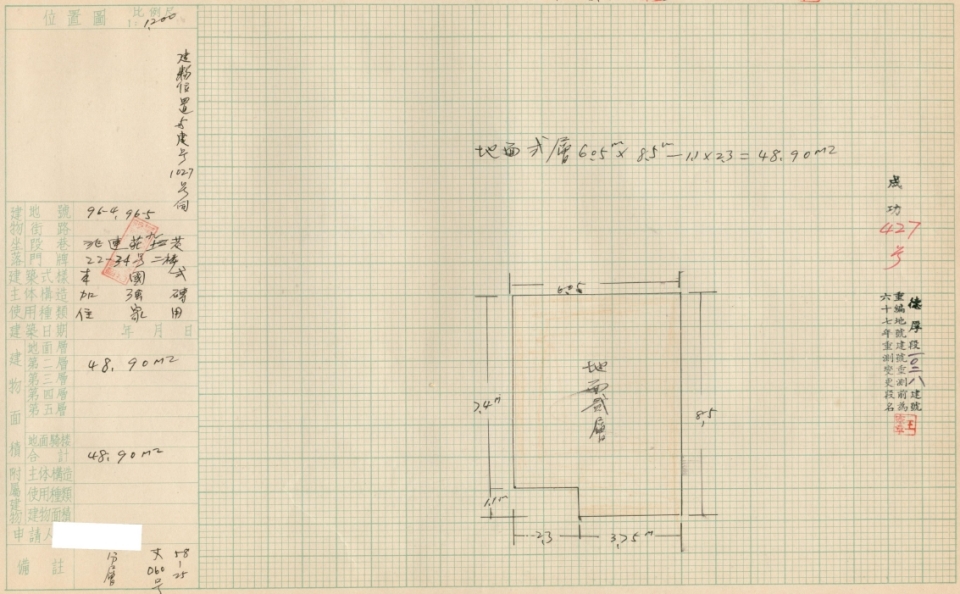 位置圖
比例尺
1:1,200
建物位置与建号1027号同
建物坐落
地號 96-4, 96-5
街路
段巷
門牌 22-34号二樓
建築式樣 本國式
主体構造 加強磚
使用種類 住家用
建築日期 年 月 日
建物面積
地面層
第二層 48.90m2
第三層
第四層
第五層
地面騎樓
合計 48.90m2
附屬建物
主体構造
使用種類
建物面積
申請人
備註
分層
58
25
地面弍層 6.05m×8.5m-1.1×2.3=48.90m2
6.05
7.4m
8.5
地面弍層
1.1m
2.3
3.75m
成功
427号
德厚段一0二八建號
重編地號建號重測前為
六十七年重測變更段名